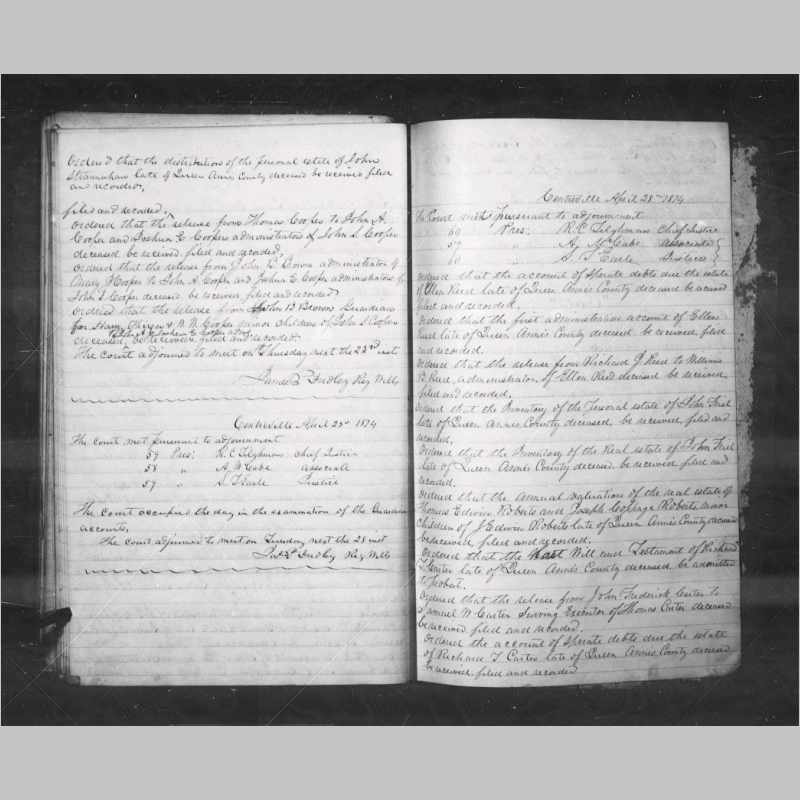 Ordered that the distribution of the personal estate of John
late of Queen Anns County deceased be received filed
and recorded,
filed and recorded,
Ordered that the release from Thomas Cooper to John A.
Cooper and Joshua E. Coopers administrators of John S. Cooper
deceased be received filed and recorded,
Ordered that the release from John B. Brown administrator of
Cooper to John A. Cooper and Joshua E. Cooper administrators of
John S. Cooper deceased be received filed and recorded
Ordered that the release from John B Brown Guardian
for W. Cooper minor children of John S Cooper
to John A & Joshua E Cooper admrs.
deceased, be received filed and recorded.
The court adjourned to meet on Thursday next the 23rd inst
Dudley Reg Wills
Centreville April 23rd 1874
The court met pursuant to adjournment
59 Pres: R. C. Tilghman Chief Justice
58 " A. McCabe Associate
57 " S. T. Earle Justice
The court occupied the day in the examination of the Guardian
accounts.
The court adjourned to meet on Tuesday next the 28 inst
Dudley Reg Wills
Centreville April 28th 1874
The Court met pursuant to adjournment
60 Pres: R. C. Tilghman Chief Justice
59 " A. McCabe Associate
60 " S. T. Earle Justices
Ordered that the account of Sperate debts due the estate
of Ellen Reed late of Queen Anne's County deceased be received
filed and recorded.
Ordered that the first administration account of Ellen
Reed late of Queen Anne's County deceased, be received, filed
and recorded.
Ordered that the release from Richard J. Reed to William
B. Reed, administrator of Ellen Reed deceased be received
filed and recorded.
Ordered that the Inventory of the Personal estate of John
late of Queen Annes County deceased, be received, filed and
recorded,
Ordered that the Inventory of the Real estate of John
late of Queen Anne's County deceased, be received, filed and
recorded.
Ordered that the annual valuations of the real estate of
Thomas Edwin Roberts and Joseph Roberts minor
children of J Edwin Roberts late of Queen Anne's County deceased
be received, filed and recorded.
Ordered that the last Will and Testament of Richard
T Carter late of Queen Anne's County deceased, be admitted
to Probat.
Ordered that the release from John Frederick Carter to
Samuel W Carter Serving Executor of Thomas Carter deceased
be received filed and recorded.
Ordered the account of Sperate debts due the estate
of Richard T Carter late of Queen Anne's County deceased
be received, filed and recorded